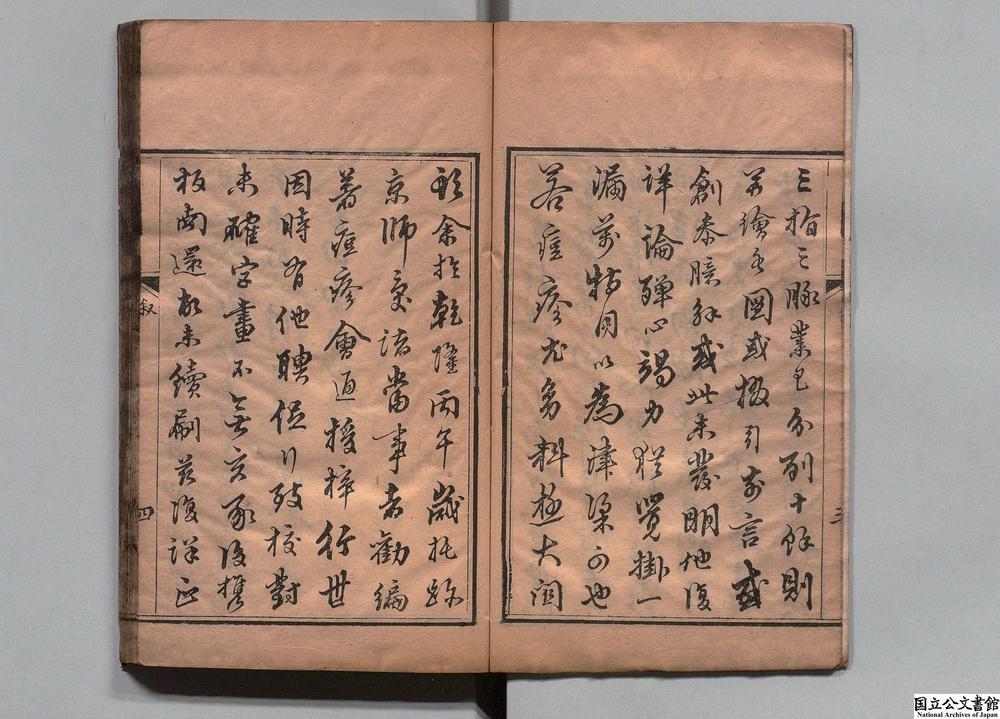 三指三脉業已分列十餘則
另繪各圖或撥引前言或
創參臆解或此未發明他復
詳論殫心竭力猶覺掛一
漏萬特自以為津梁可也
若痘疹尤多科極大関
敢余於乾隆丙午歲托跡
京師受諸當事者勸編
著痘疹會通授梓行世
因時有他聘促行致校對
未確字畫不無亥豕後携
板南還故未續刷茲復詳正
叙
四
三
国立公文書館
National Archives of Japan